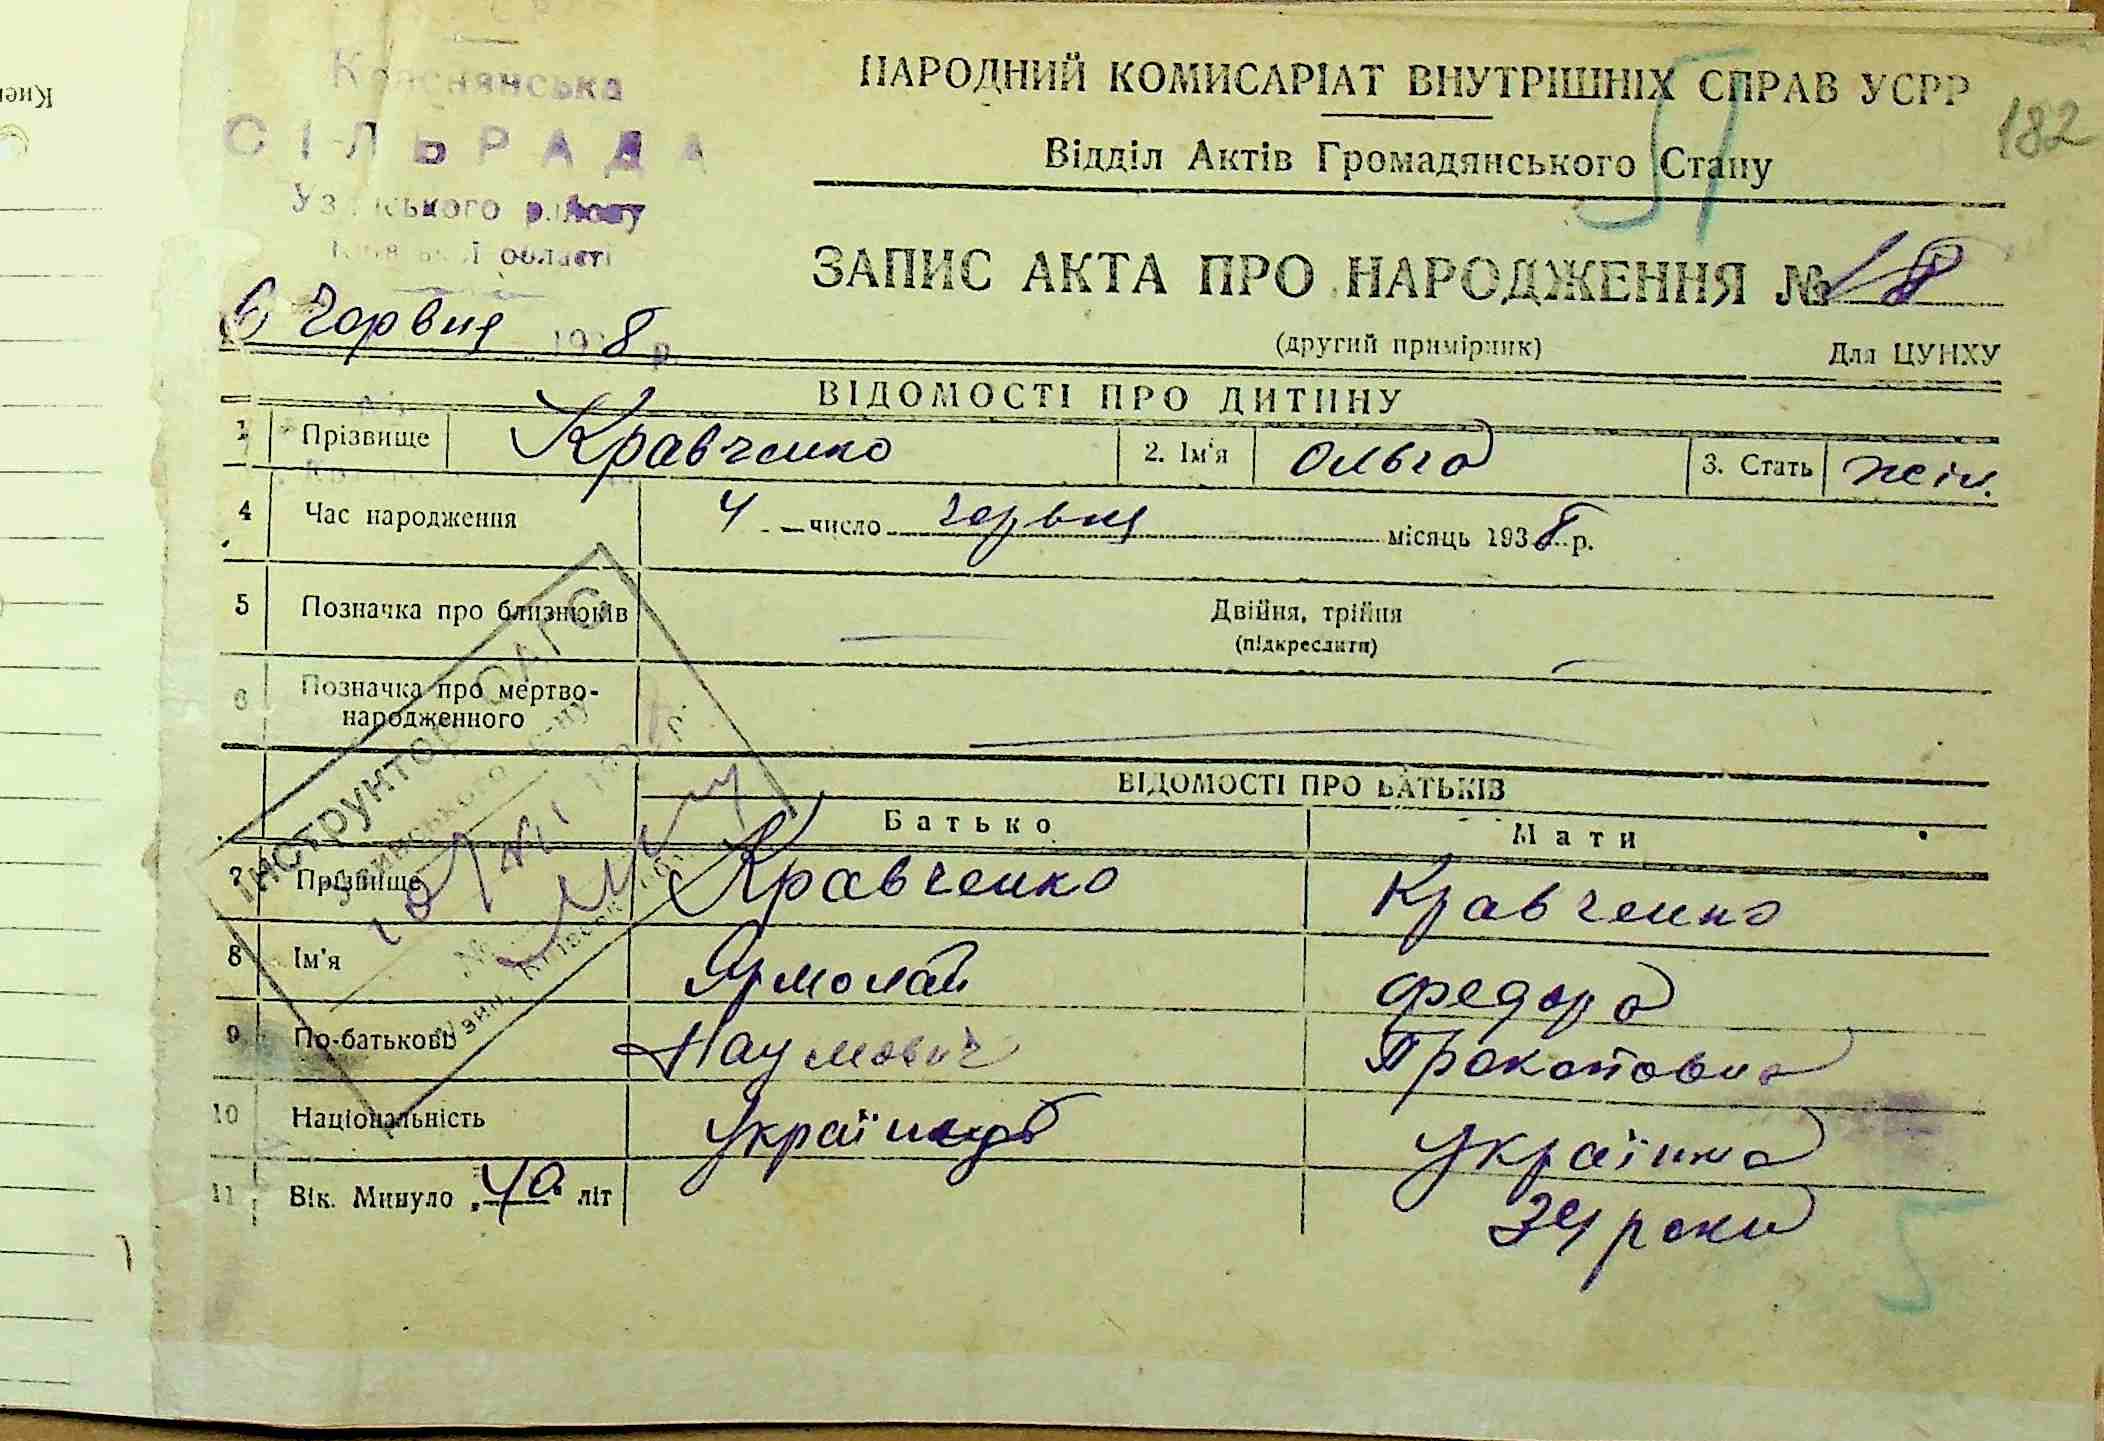 Краснянська
СІЛЬРАДА
Узинського району
Київської області
НАРОДНИЙ КОМИСАРІАТ ВНУТРІШНІХ СПРАВ УСРР
182
51
Відділ Актів Громадянського Стану
ЗАПИС АКТА ПРО НАРОДЖЕННЯ № 18
6 Чорвня 1938 р.
(другий примірник) Для ЦУНХУ
ВІДОМОСТІ ПРО ДИТИНУ
1 Прізвище Кравченко 2. Ім'я Ольга 3. Стать жін.
4 Час народження 4 число чорвня місяць 1938 р.
5 Позначка про близнюків Двійня, трійня
(підкреслити)
6 Позначка про мертво-
народженного
ВІДОМОСТІ ПРО БАТЬКІВ
Батько Мати
7 Прізвище Кравченко Кравченко
8 Ім'я Ярмолай Федора
9 По-батькові Наумович Прокоповна
10 Національність Українець Українка
11 Вік. Минуло „40“ літ 34 роки
5
ІНСТРУКТОР ОАГС
Узинського
Узин, Київськ.